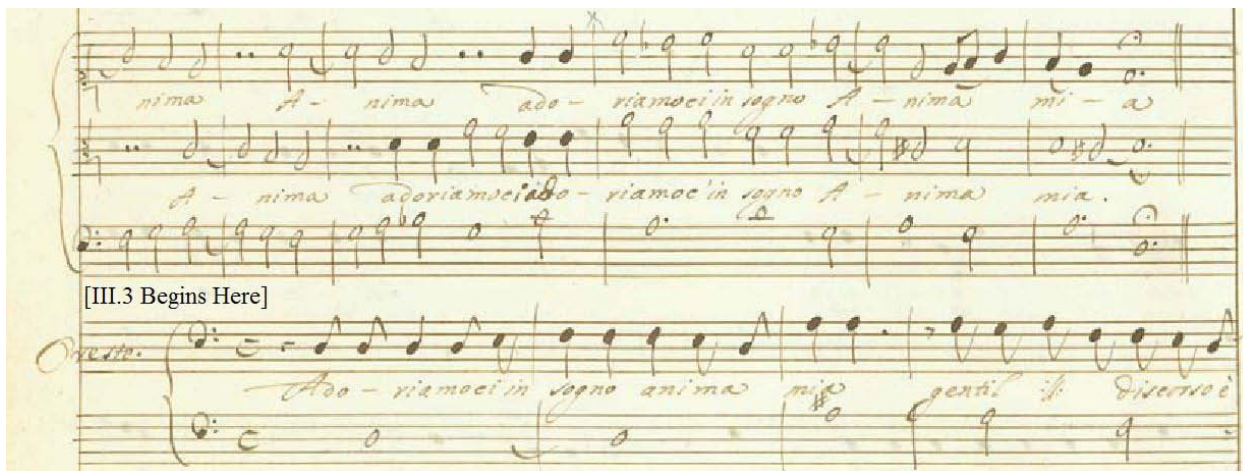 nima A - nima ado - riamoci in sogno A - nima mi - a
A - nima adoriamoci ado - riamoc'in sogno A - nima mia.
[III.3 Begins Here]
Oreste.
Ado - riamoci in sogno anima mia gentil :||: discorso è